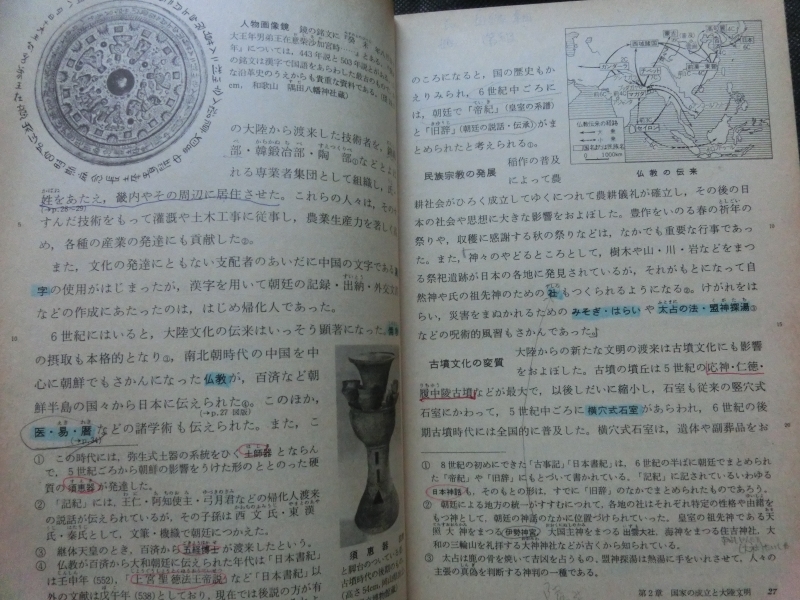 人物画像鏡 鏡の銘文に
大王年男弟王在意柴沙加宮時
年」については、443年説と503年説がある
の銘文は漢字で国語をあらわした最古のもの
な沿革史のうえからも貴重な資料である。
cm, 和歌山 隅田八幡神社蔵)
の大陸から渡来した技術者を、
部・韓鍛冶部・陶部①などとよ
れる専業者集団として組織し、
姓をあたえ、畿内やその周辺に居住させた。これらの人々は、その
(→p.28~29)
すんだ技術をもって灌漑や土木工事に従事し、農業生産力を著し
め、各種の産業の発達にも貢献した②。
また、文化の発達にともない支配者のあいだに中国の文字である
字の使用がはじまったが、漢字を用いて朝廷の記録・出納・外交文
などの作成にあたったのは、はじめ帰化人であった。
6世紀にはいると、大陸文化の伝来はいっそう顕著になった。
の摂取も本格的となり③、南北朝時代の中国を中
心に朝鮮でもさかんになった仏教が、百済など朝
鮮半島の国々から日本に伝えられた④。このほか、
(→p.27 図版)
医・易・暦などの諸学術も伝えられた。また、こ
① この時代には、弥生式土器の系統をひく土師器とならん
で、5世紀ごろから朝鮮の影響をうけた形のととのった硬
質の須恵器が発達した。
② 「記紀」には、王仁・阿知使主・弓月君などの帰化人渡来
の説話が伝えられているが、その子孫は西文氏・東漢
氏・秦氏として、文筆・機織で朝廷につかえた。
③ 継体天皇のとき、百済から五経博士が渡来したという。
④ 仏教が百済から大和朝廷に伝えられた年代は「日本書紀」
は壬申年(552)、「上宮聖徳法王帝説」など「日本書紀」以
外の文献は戊午年(538)としており、現在では後説の方が有
須恵器
と脚台のついている
(高さ54cm, 岡山
のころになると、国の歴史もか
えりみられ、6世紀中ごろに
は、朝廷で「帝紀」(皇室の系譜)
と「旧辞」(朝廷の説話・伝承)がま
とめられたと考えられる①。
仏教伝来の経路
セイロン
0 1000km
仏教の伝来
民族宗教の発展
稲作の普及
によって農
耕社会がひろく成立してゆくにつれて農耕儀礼が確立し、その後の日
本の社会や思想に大きな影響をおよぼした。豊作をいのる春の祈年の
祭りや、収穫に感謝する秋の祭りなどは、なかでも重要な行事であっ
た。また、神々のやどるところとして、樹木や山・川・岩などをまつ
る祭祀遺跡が日本の各地に発見されているが、それがもとになって自
然神や氏の祖先神のための社もつくられるようになる②。けがれをは
らい、災害をまぬかれるための みそぎ・はらい や 太占の法・盟神探湯③
などの呪術的風習もさかんであった。
古墳文化の変質
大陸からの新たな文明の渡来は古墳文化にも影響
をおよぼした。古墳の墳丘は5世紀の応神・仁徳・
履中陵古墳などが最大で、以後しだいに縮小し、石室も従来の竪穴式
石室にかわって、5世紀中ごろに横穴式石室があらわれ、6世紀の後
期古墳時代には全国的に普及した。横穴式石室は、遺体や副葬品をお
① 8世紀の初めにできた「古事記」「日本書紀」は、6世紀の半ばに朝廷でまとめられ
た「帝紀」や「旧辞」にもとづいて書かれている。「記紀」に記されているいわゆる
日本神話も、そのもとの形は、すでに「旧辞」のなかでまとめられたものであろう。
② 朝廷による地方の統一がすすむにつれて、各地の社はそれぞれ特定の性格や由緒を
もつ神として、朝廷の神話のなかに位置づけられていった。皇室の祖先神である天
照大神をまつる伊勢神宮、大国主神をまつる出雲大社、海神をまつる住吉神社、大
和の三輪山を礼拝する大神神社などが古くから知られている。
③ 太占は鹿の骨を焼いて吉凶を占うもの、盟神探湯は熱湯に手をいれさせて、人々の
主張の真偽を判断する神判の一種である。
第2章 国家の成立と大陸文明 27